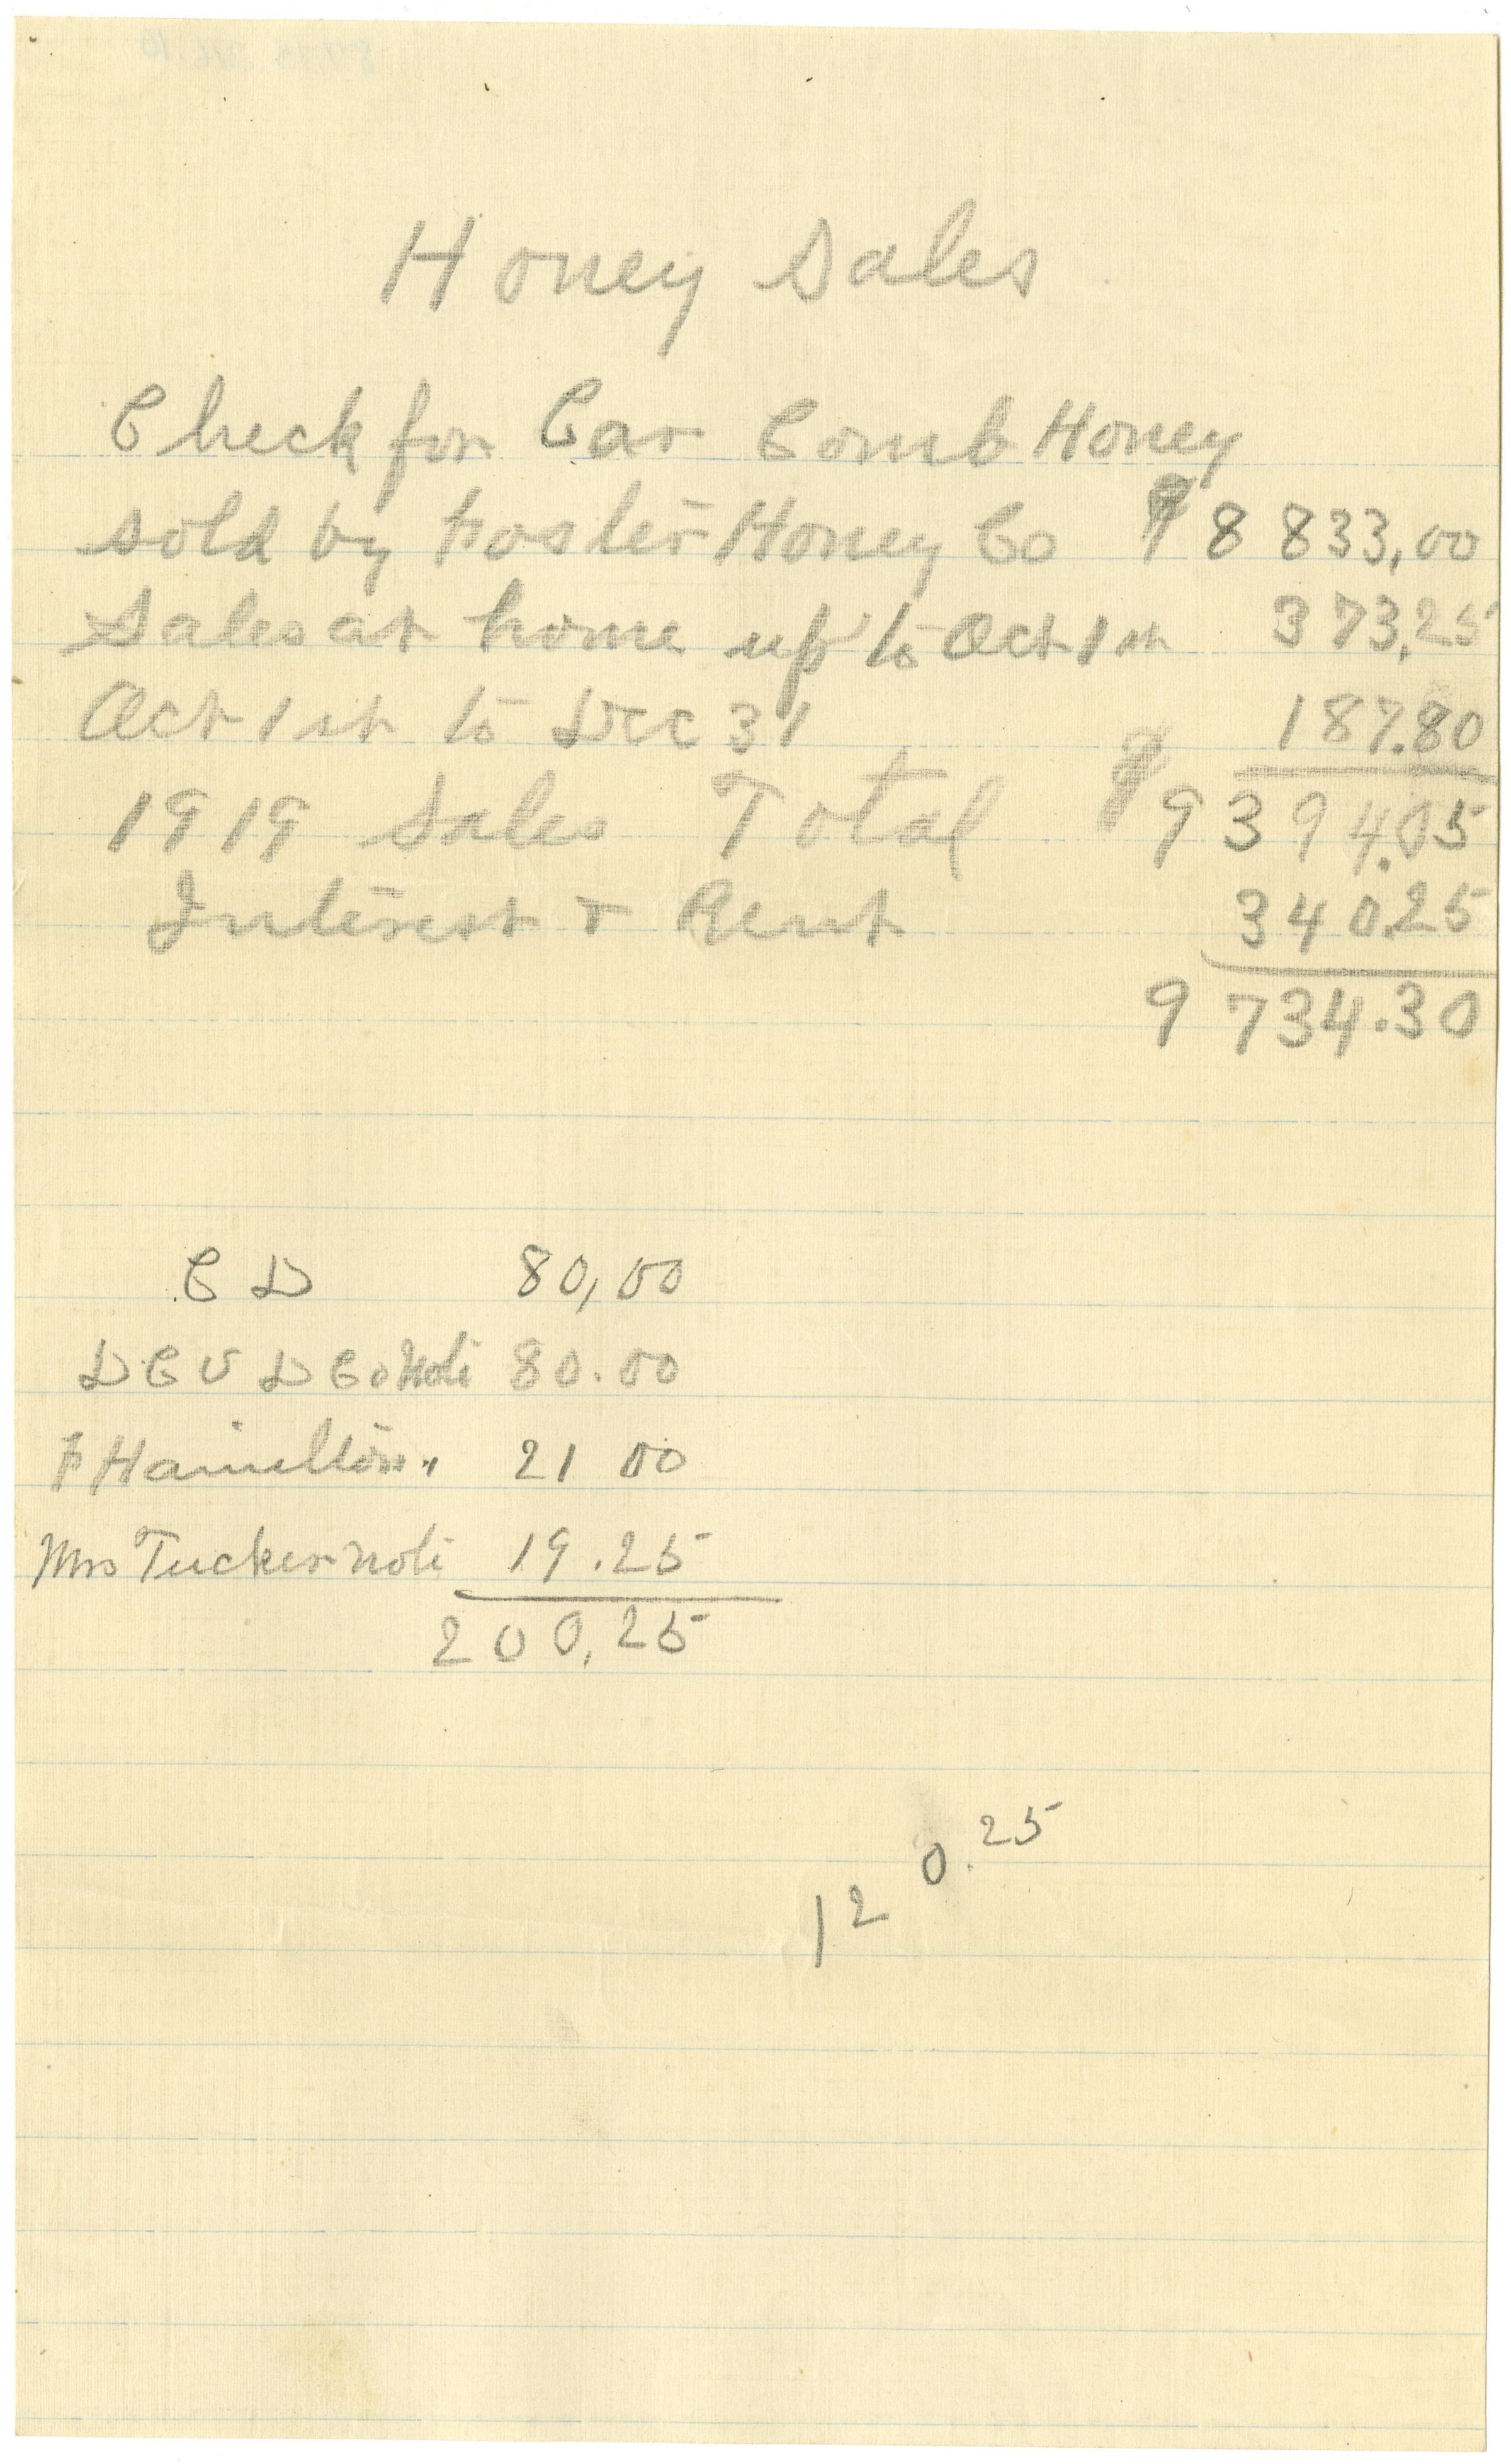 Honey Sales
Check for Car Comb Honey
sold by Foster Honey Co $8 833,00
Sales at home up to Oct 1st 373,25
Oct 1st to Dec 31 187.80
1919 Sales Total $9 394.05
Interest & Rent 340.25
9 734.30
C D 80,00
D C V D Co Note 80.00
F Hamilton " 21 00
Mrs Tucker note 19.25
200,25
120.25